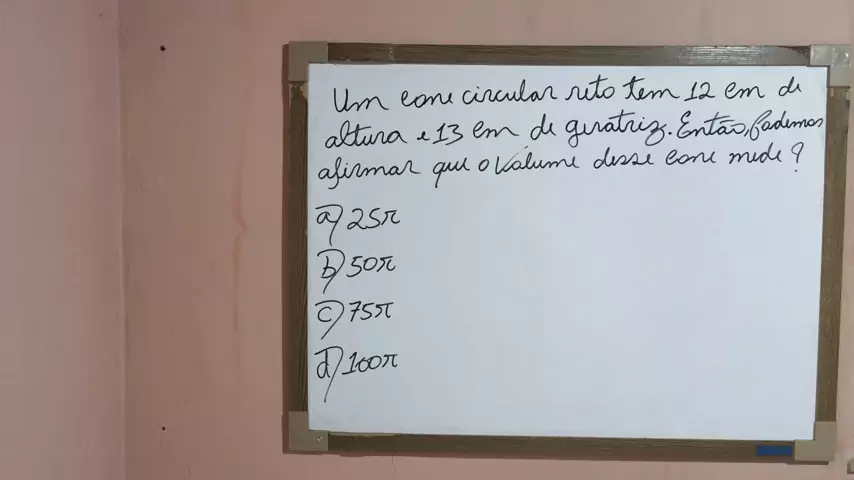 Um cone circular reto tem 12 cm de
altura e 13 cm de geratriz. Então, podemos
afirmar que o volume desse cone mede?
a) 25π
b) 50π
c) 75π
d) 100π